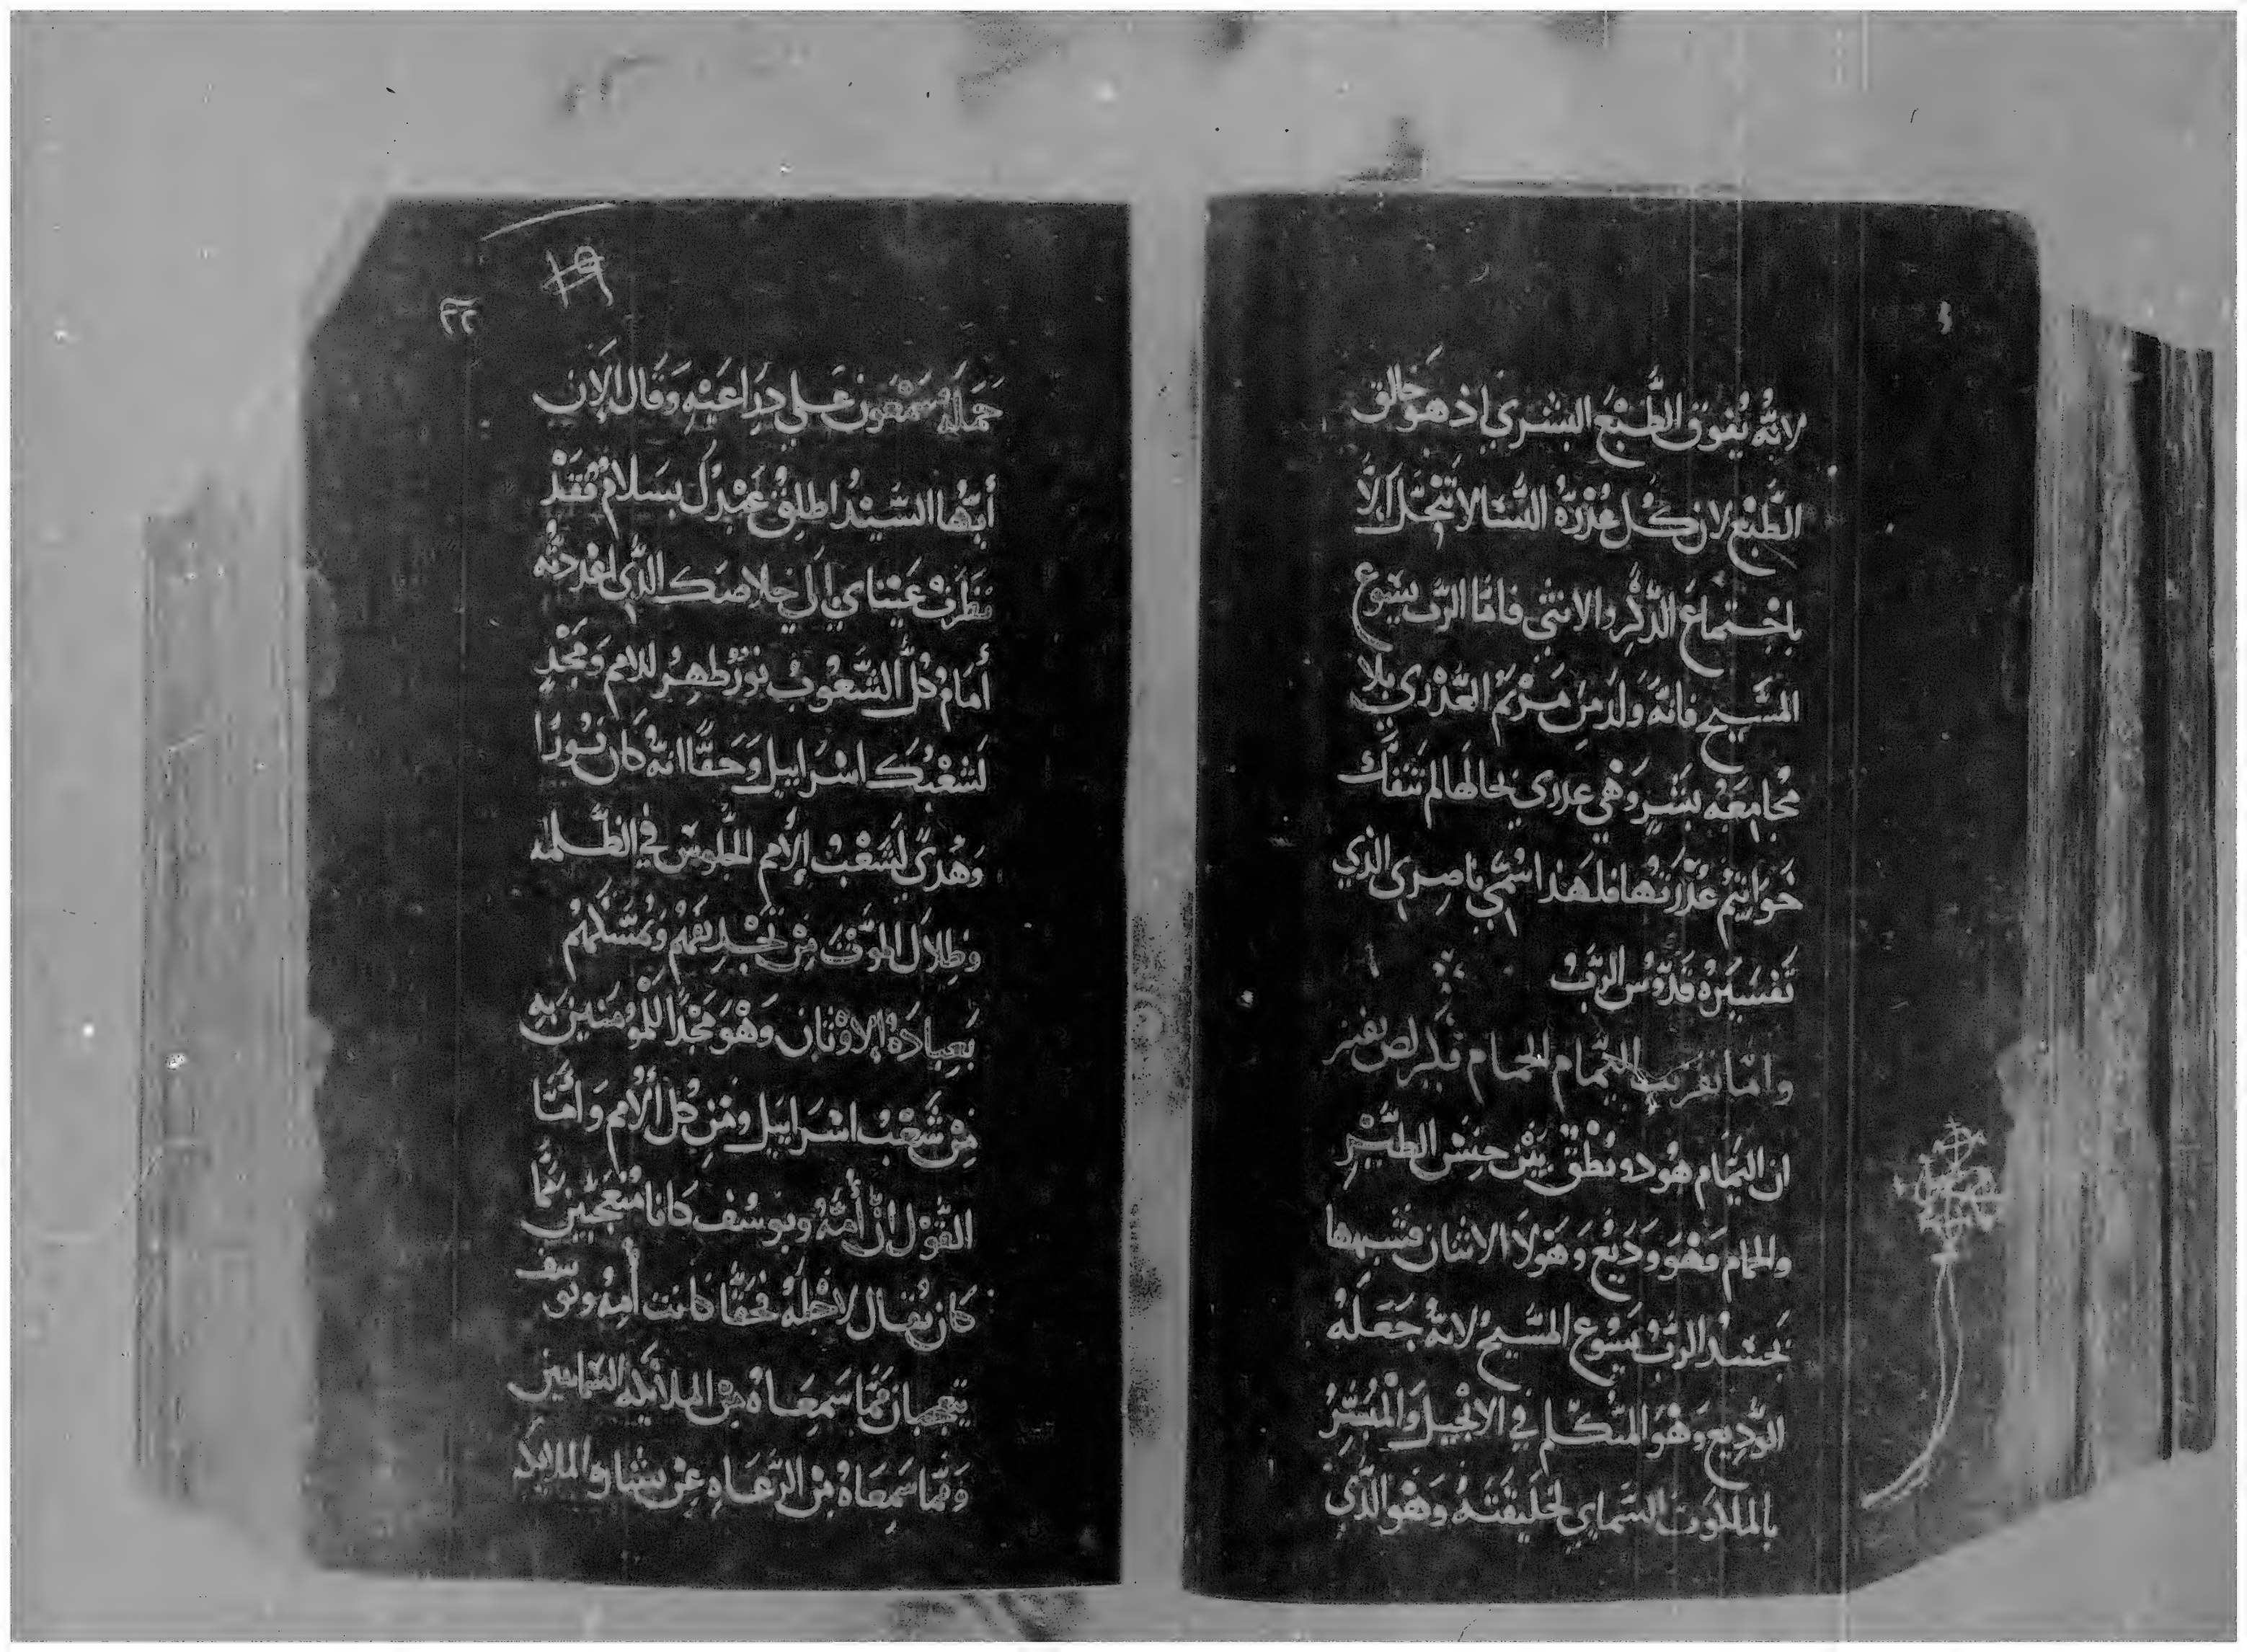 لانه يفوق الطبع البشري اذ هو خالق
الطبع لان كل عذرة النسا لا تنحل الا
باجتماع الذكر والانثي فاما الرب يسوع
المسيح فانه ولد من مريم العذري بلا
مجامعه بشر وهي عذري بحالها لم تنفك
خواتيم عذرتها فلهذا اسمي ناصري الذي
تفسيره قدوس الرب
واما تقريب اليمام الحمام
ان اليمام هو ذو نطق بين جنس الطير
والحمام فهو وديع وهولا الاثنان فشبهها
بجسد الرب يسوع المسيح لانه جعله
الوديع وهو المتكلم في الانجيل والمبشر
بالملكوت السماي لخليقته وهو الذي
٢٢
١٩
حمله سمعون علي دراعيه وقال الان
أيها السيد اطلق عبدك بسلام فقد
نظرت عيناي الي خلاصك الذي اعددته
أمام كل الشعوب نور طهر للامم ومجد
لشعبك اسراييل وحقا انه كان نورا
وهدي لشعب الأمم الجلوس في الظلمه
وظلال الموت من تجديفهم وتمسكهم
بعبادة الاوثان وهو مجدا للمومنين به
من شعب اسراييل ومن كل الأمم وامّا
القول ان أمه ويوسف كانا متعجبين مما
كان يقال لاجله فحقا كانت أمه ويوسف
يتعجبان مما سمعاه من الملايكه السمايين
ومما سمعاه من الرعاه عن بشارة الملايكه